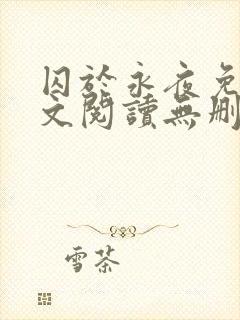 囚於永夜免
文閱讀無刪
雪茶